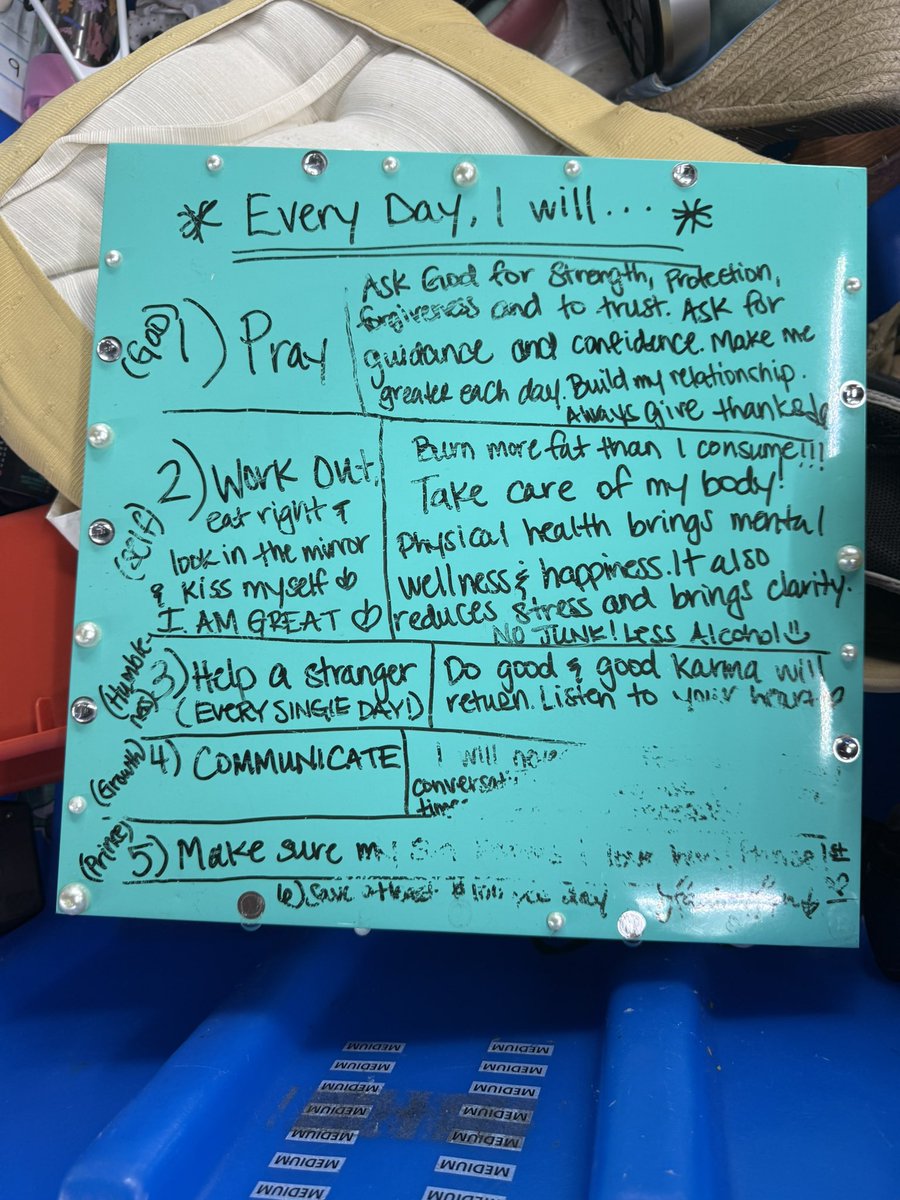 * Every Day, I will... *
(God) 1) Pray
Ask God for Strength, Protection,
forgiveness and to trust. Ask for
guidance and confidence. Make me
greater each day. Build my relationship.
Always give thanks
(Self) 2) Work out,
eat right &
look in the mirror
& kiss myself ♡
I AM GREAT ♡
Burn more fat than I consume!!!
Take care of my body!
Physical health brings mental
wellness & happiness. It also
reduces stress and brings clarity.
NO JUNK! Less Alcohol ☺
(Humble-
ness) 3) Help a stranger
(EVERY SINGLE DAY!)
Do good & good Karma will
return. Listen to your heart
(Growth) 4) COMMUNICATE
I will
(Prince) 5) Make sure my love
1st
6) Save day
9
MEDIUM
MEDIUM
MEDIUM
MEDIUM
MEDIUM
MEDIUM
MEDIUM
MEDIUM
MEDIUM
MEDIUM
MEDIUM
MEDIUM
MEDIUM
MEDIUM
MEDIUM
MEDIUM